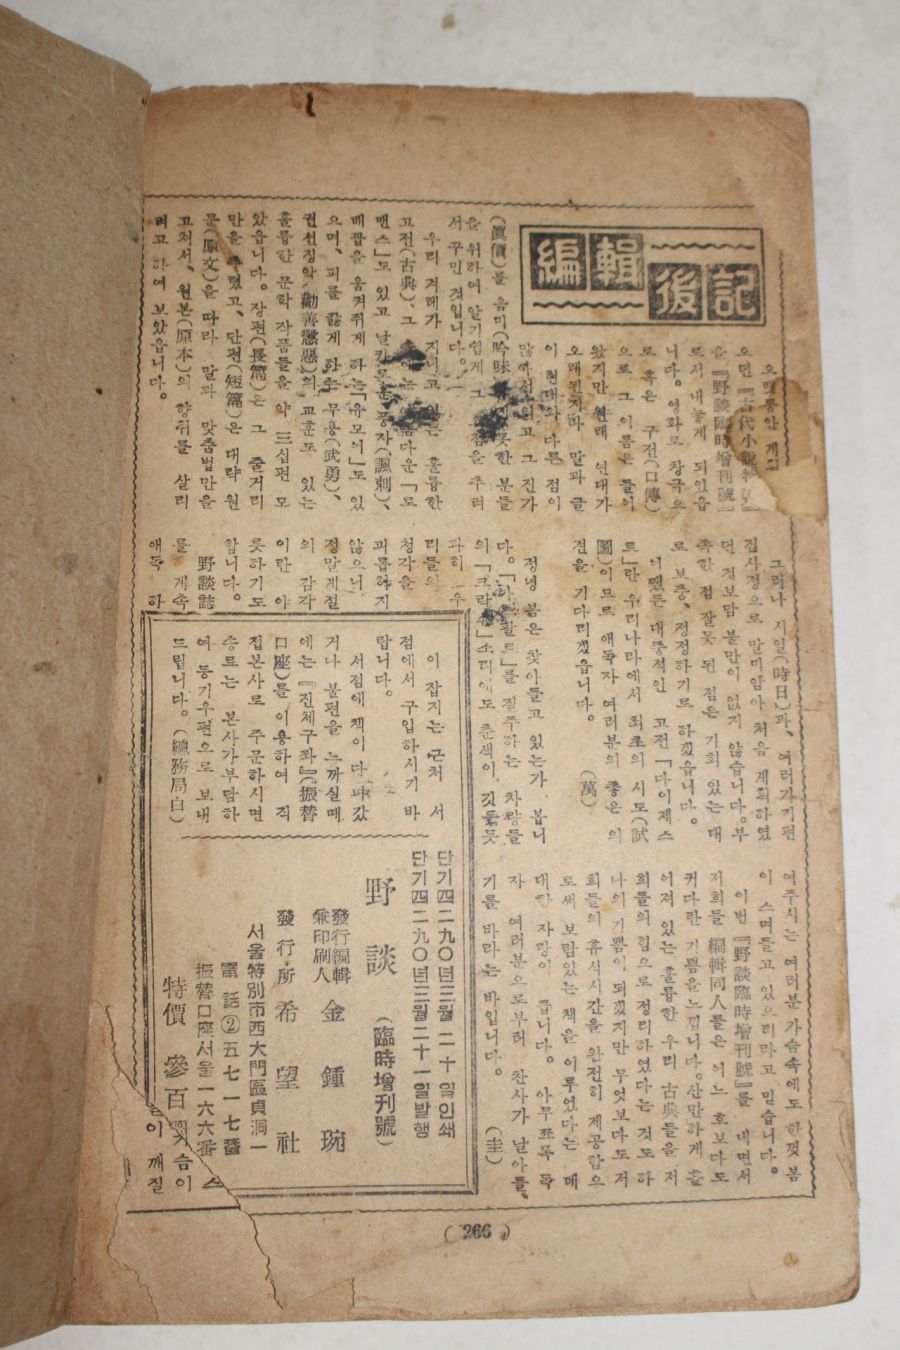 編輯後記
오랫동안 계
오던 『古代小說特
을 『野談臨時增刊號』
로서 내놓게 되었읍
니다。영화로 창극으
로 혹은 구전(口傳)
으로 그 이름은 들어
왔지만 원래 연대가
오래된지라 말과 글
이 현대와 다른 점이
많아서 읽고 그 진가
(眞價)를 음미(吟味) 못한 분들
을 위하여 알기쉽게 그 을 추려
서 꾸민 것입니다。
우리 겨레가 지니고 있는 훌륭한
고전(古典)、그 에는 아름다운 「로
맨스」도 있고 날카로운 풍자(諷刺)、
배꼽을 움켜쥐게 하는 「유모어」도 있
으며、피를 끓게 하는 무용(武勇)、
권선징악(勸善懲惡)의 교훈도 있는
훌륭한 문학 작품들을 약 三십편 모
았읍니다。장편(長篇)은 그 줄거리
만을 추렸고、단편(短篇)은 대략 원
문(原文)을 따라 말과 맞춤법만을
고쳐서、원본(原本)의 향취를 살리
려고 하여 보았읍니다。
그러나 시일(時日)과、여러가지 편
집사정으로 말미암아 처음 계획하였
던 것보담 불만이 없지 않습니다。부
족한 점 잘못 된 점은 기회 있는 대
로 보충、정정하기로 하겠읍니다。
어쨌든 대중적인 고전 「다이제스
트」란 우리나라에서 최초의 시도(試
圖)이므로 애독자 여러분의 좋은 의
견을 기다리겠읍니다。
(萬)
정녕 봄은 찾아들고 있는가 봅니
다。「아스팔트」를 질주하는 차량들
의 「크락숀」소리에도 춘색이 깃들듯
과히 우
리들의
청각을
괴롭히지
않으니
정말 계절
의 감각
이란 야
릇하기도
합니다。
野談誌
를 계속
애독 하
여주시는 여러분 가슴속에도 한껏 봄
이 스며들고 있으리라고 믿습니다。
이번 『野談臨時增刊號』를 내면서
저희들 編輯同人들은 어느 호보다도
커다란 기쁨을 느낍니다。산만하게 흩
어져 있는 훌륭한 우리 古典들을 저
희들의 힘으로 정리하였다는 것도 하
나의 기쁨이 되겠지만 무엇보다도 저
희들의 휴식시간을 완전히 제공함으
로써 보람있는 책을 이루었다는 데
대한 자랑이 큽니다。아무쪼록 독
자 여러분으로부터 찬사가 날아들
기를 바라는 바입니다。
(圭)
이 잡지는 근처 서
점에서 구입하시기 바
랍니다。
서점에 책이 다 나갔
거나 불편을 느끼실때
에는 『진체구좌』(振替
口座)를 이용하여 직
접 본사로 주문하시면
송료는 본사가 부담하
여 등기우편으로 보내
드립니다。(總務局白)
단기四二九〇년三월 二十일인쇄
단기四二九〇년三월二十一일발행
野談 (臨時增刊號)
發行編輯
兼印刷人 金鍾琬
發行所 希望社
서울特別市西大門區貞洞一
電話②五七一七番
振替口座서울一六六番
特價 參百圜
슴이
이 깨질
( 266 )